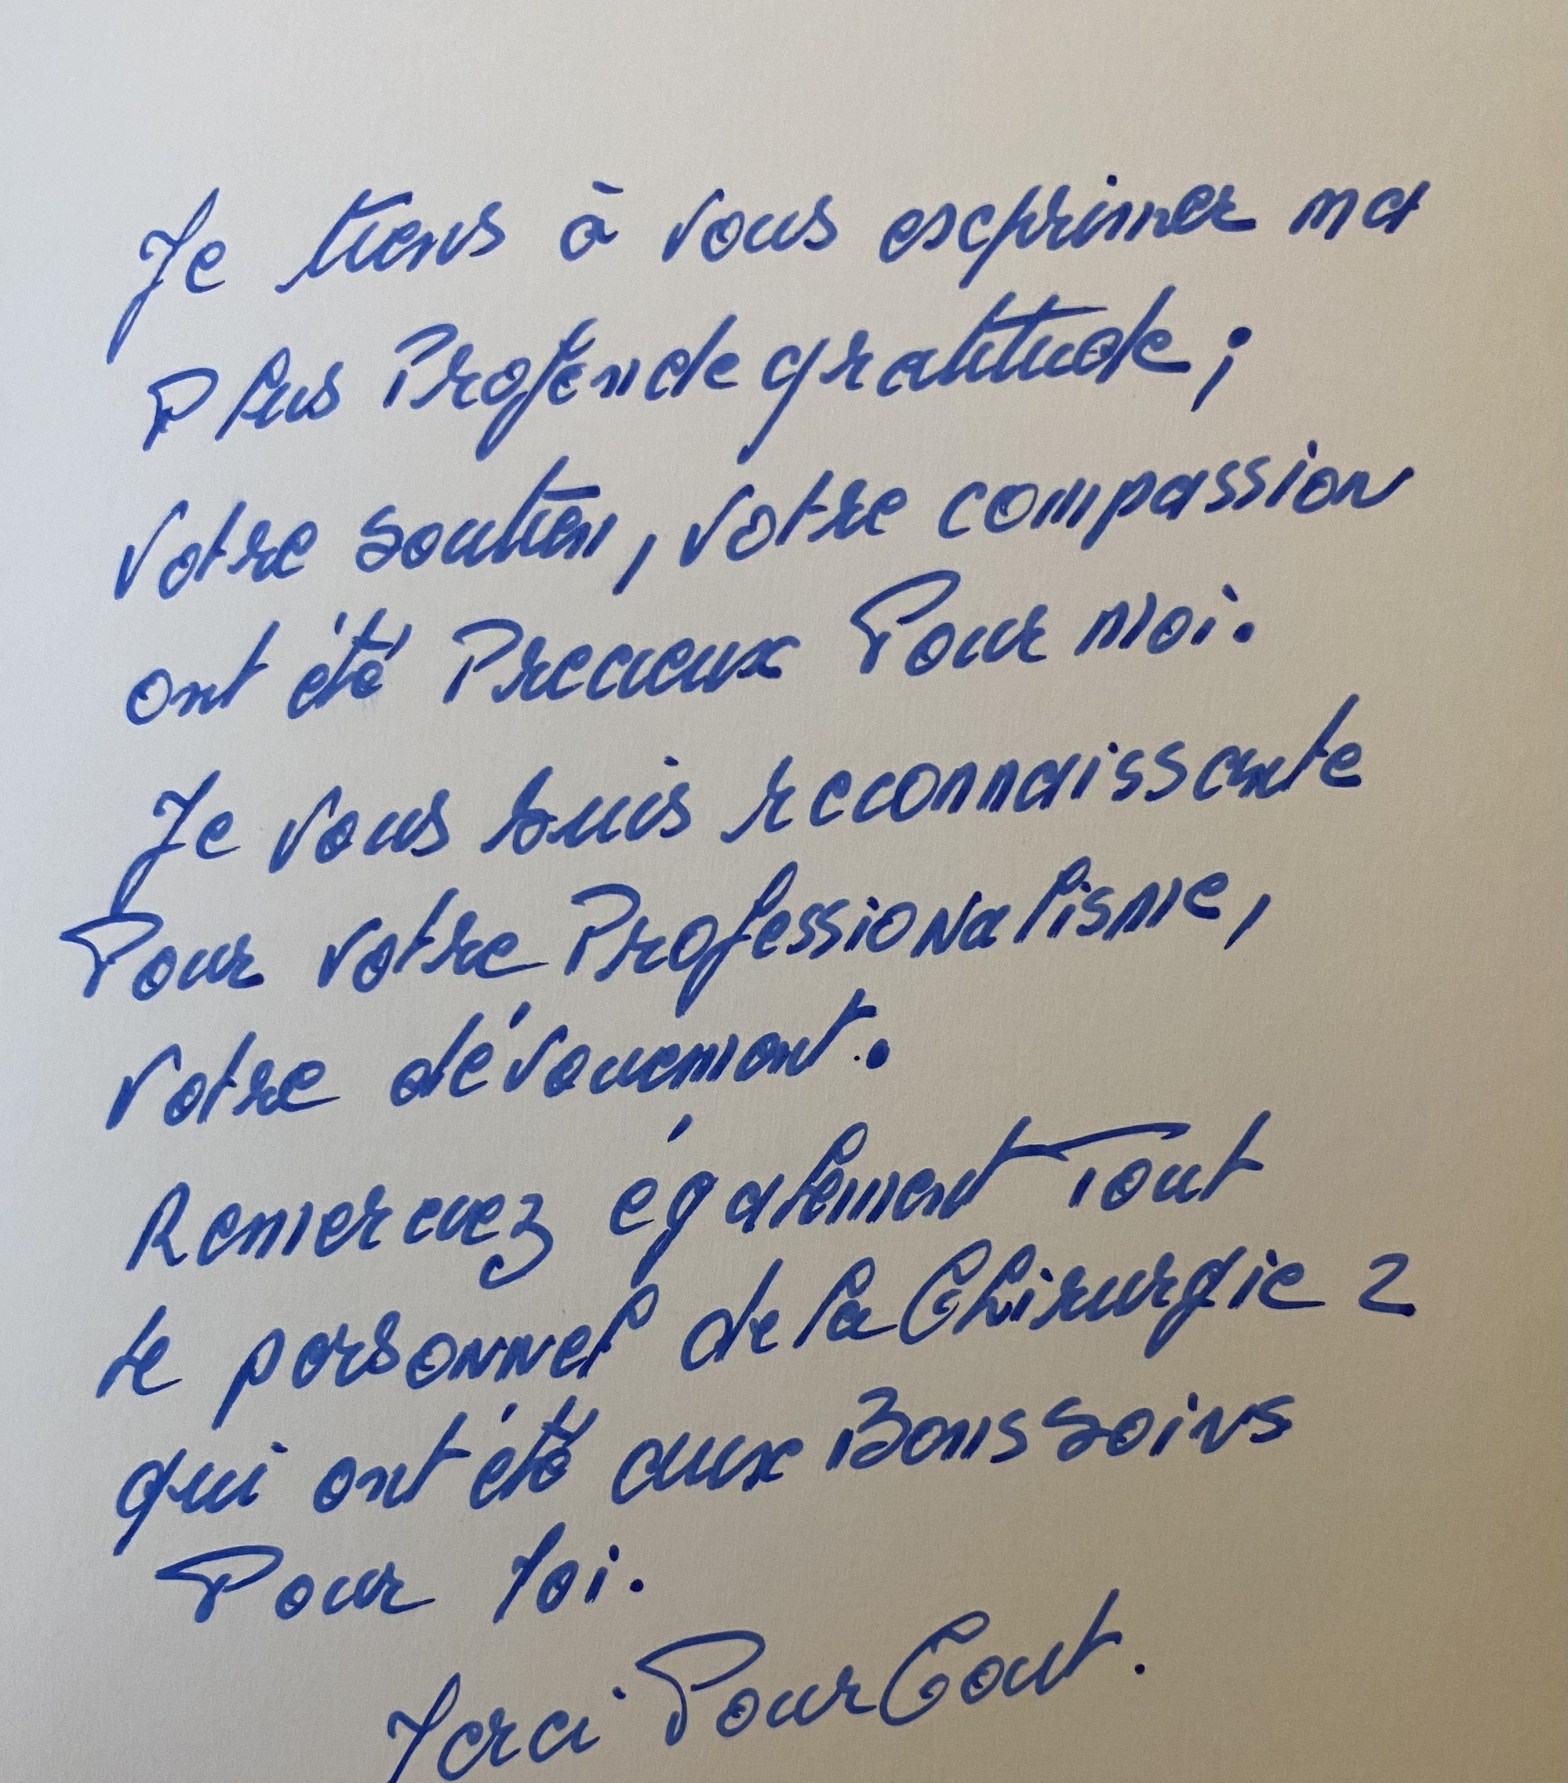 Je tiens à vous exprimer ma
Plus Profonde gratitude ;
votre soutien, votre compassion
ont été Precieux Pour moi.
Je vous suis reconnaissante
Pour votre Professionalisme,
votre dévouement.
Remerciez également Tout
le personnel de la Chirurgie 2
qui ont été aux Bons soins
Pour
Merci Pour Tout.